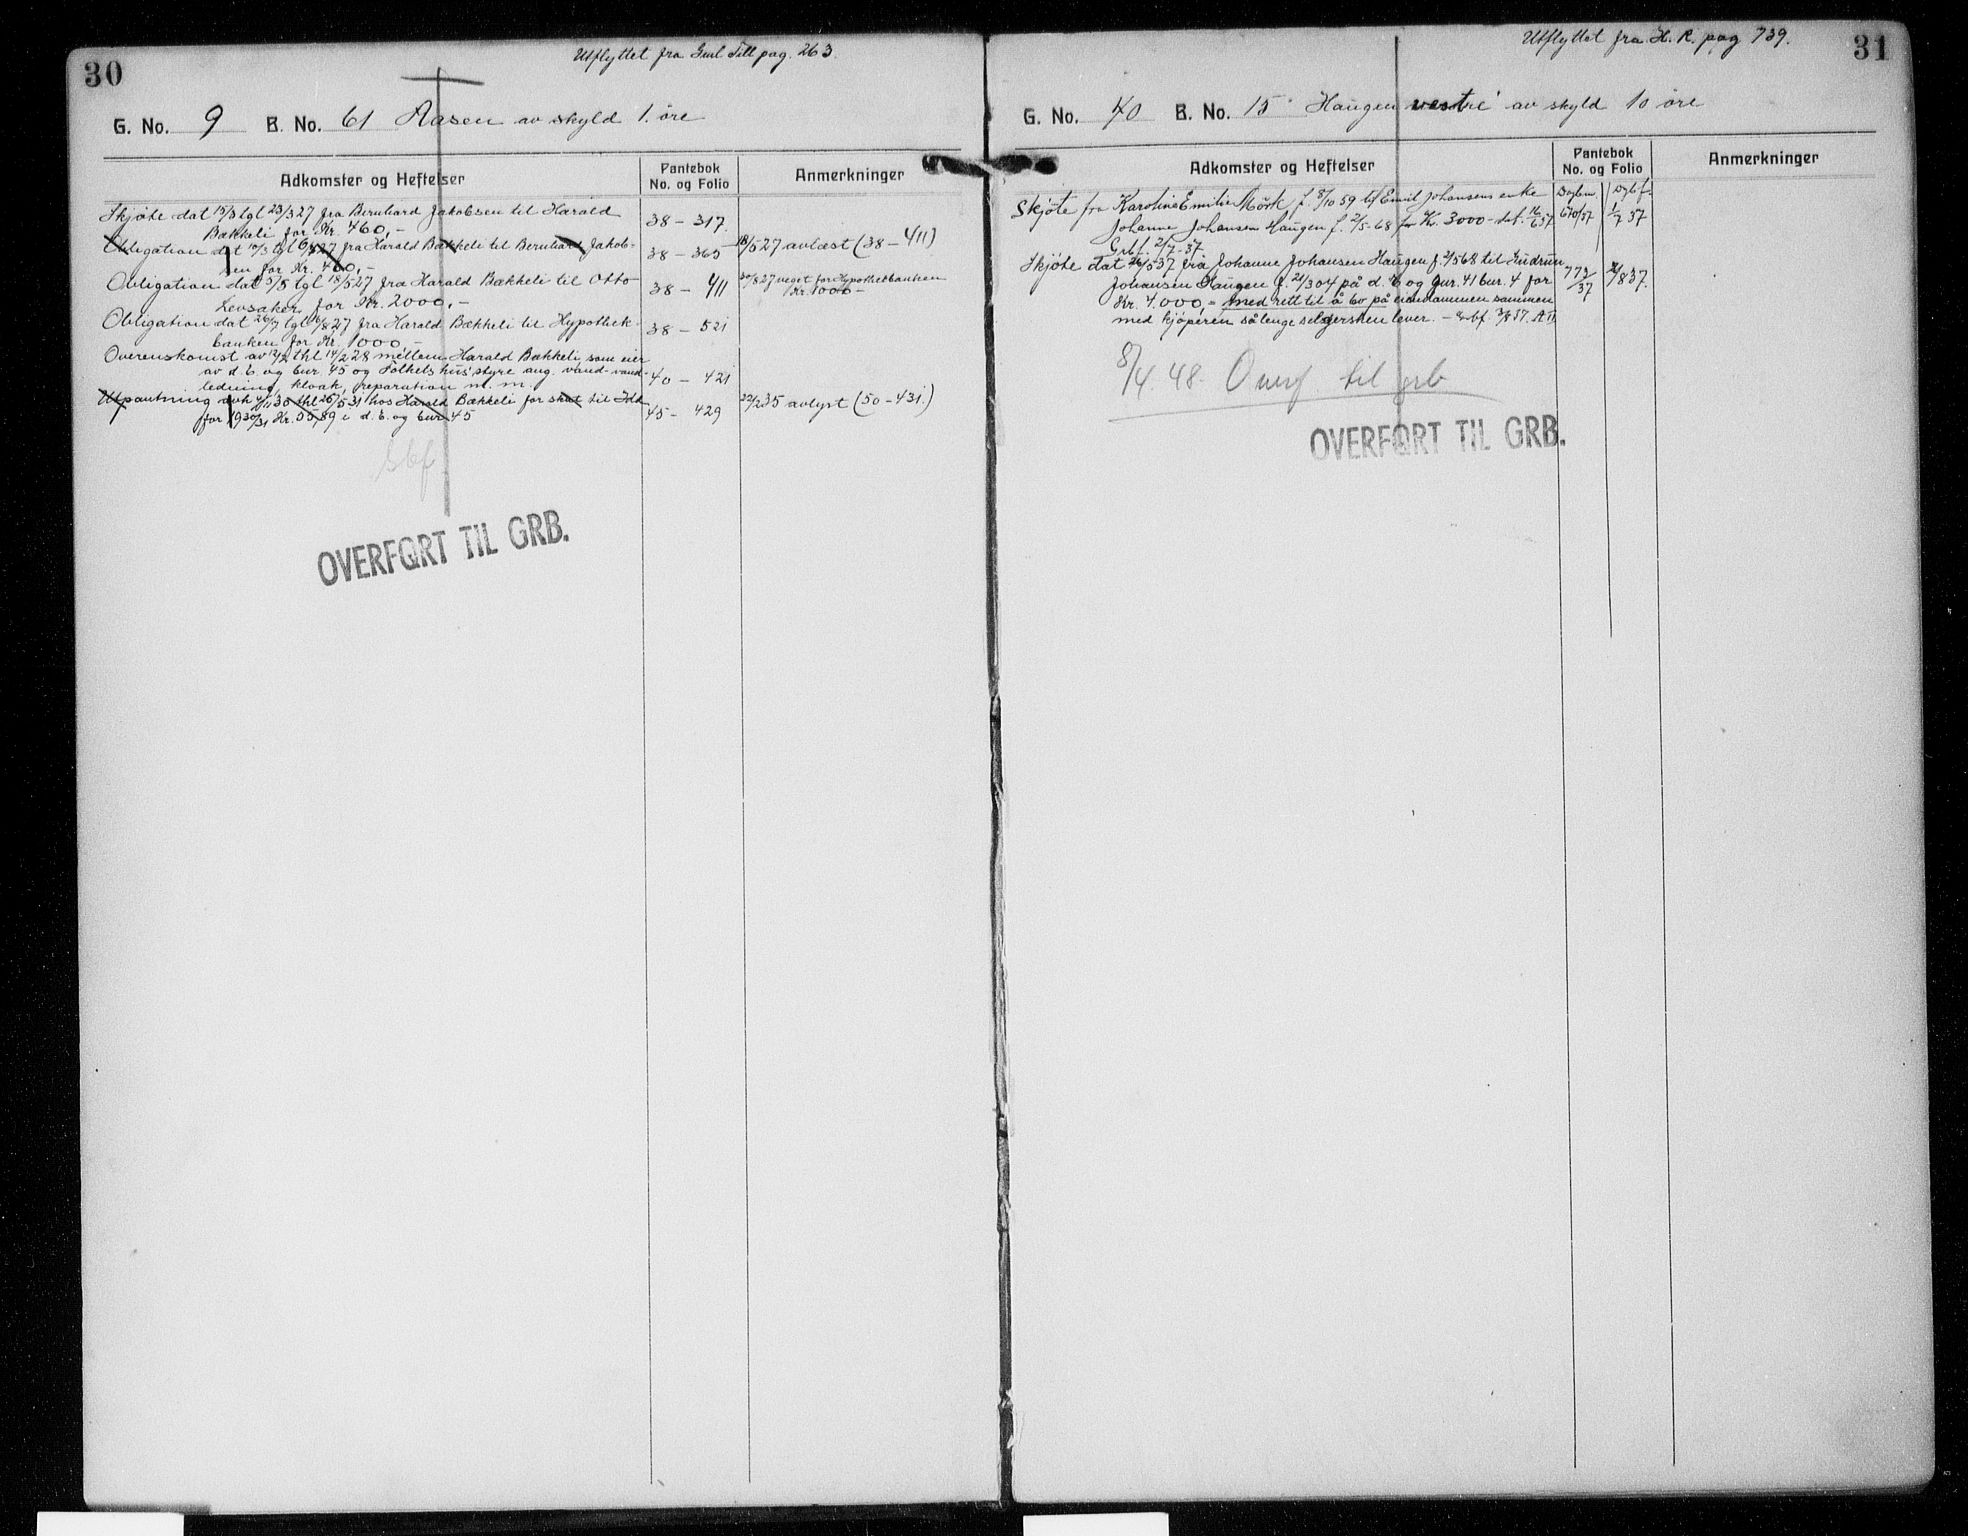 30
Utflyttet fra Gml Till pag. 263.
G. No. 9 B. No. 61 Aasen av skyld 1. øre
Adkomster og Heftelser
Pantebok
No. og Folio
Anmerkninger
Skjøte dat 15/3 tgl 23/3 27 fra Bernhard Jakobsen til Harald
Bækkeli for Kr. 460,-
38 - 317.
Obligation dat tgl 6/4 27 fra Harald Bækkeli til Bernhard Jakob-
sen for Kr. 460,-
38 - 365
18/5 27 avlæst (38 - 411)
Obligation dat 5/5 tgl 18/5 27 fra Harald Bækkeli til Otto
Levsaker for Kr. 2000,-
38 - 411
30/8 27 veget for Hypothekbanken
Kr. 1000 -
Obligation dat 26/7 tgl 6/8 27 fra Harald Bækkeli til Hypothek-
banken for Kr. 1000 -
38 - 521
Overenskomst av 12/2 thl 14/2 28 mellem Harald Bækkeli, som eier
av d. b. og bnr. 45 og Folkets hus' styre ang. vand-vand-
ledning, kloak, reparation m. m.
40 - 421
Utpantning avh 4/11 30 thl 26/5-31 hos Harald Bækkeli for skat til Idd
for 1930/31 Kr. 55,89 i d. b. og bnr 45
45 - 429
22/2 35 avlyst (50 - 431.)
Gbf
OVERFØRT TIL GRB.
31
Utflyttet fra H. R. pag 739.
G. No. 40 B. No. 15 Haugen vestre av skyld 10 øre
Adkomster og Heftelser
Pantebok
No. og Folio
Anmerkninger
Skjøte fra Karoline Emilie Mörk f. 8/10 59 til Emil Johansens enke
Dagbnr
Dgbf.
Johanne Johansen Haugen f. 2/5-68 for Kr. 3000 - dat. 16/6 37
670/37
1/7 37
Grbf. 2/7-37
Skjöte dat 26/5 37 fra Johanne Johansen Haugen f. 2/5 68 til Gudrun
Johansen Haugen f. 21/3 04 på d. b. og gnr. 41 bnr. 4 for
773/37
2/8 37.
Kr. 4.000,- med rett til å bo på eiendommen sammen
med kjøperen sålenge selgersken lever. - Grbf. 3/8 37. A II
8/4. 48. Overf. til grb
OVERFØRT TIL GRB.